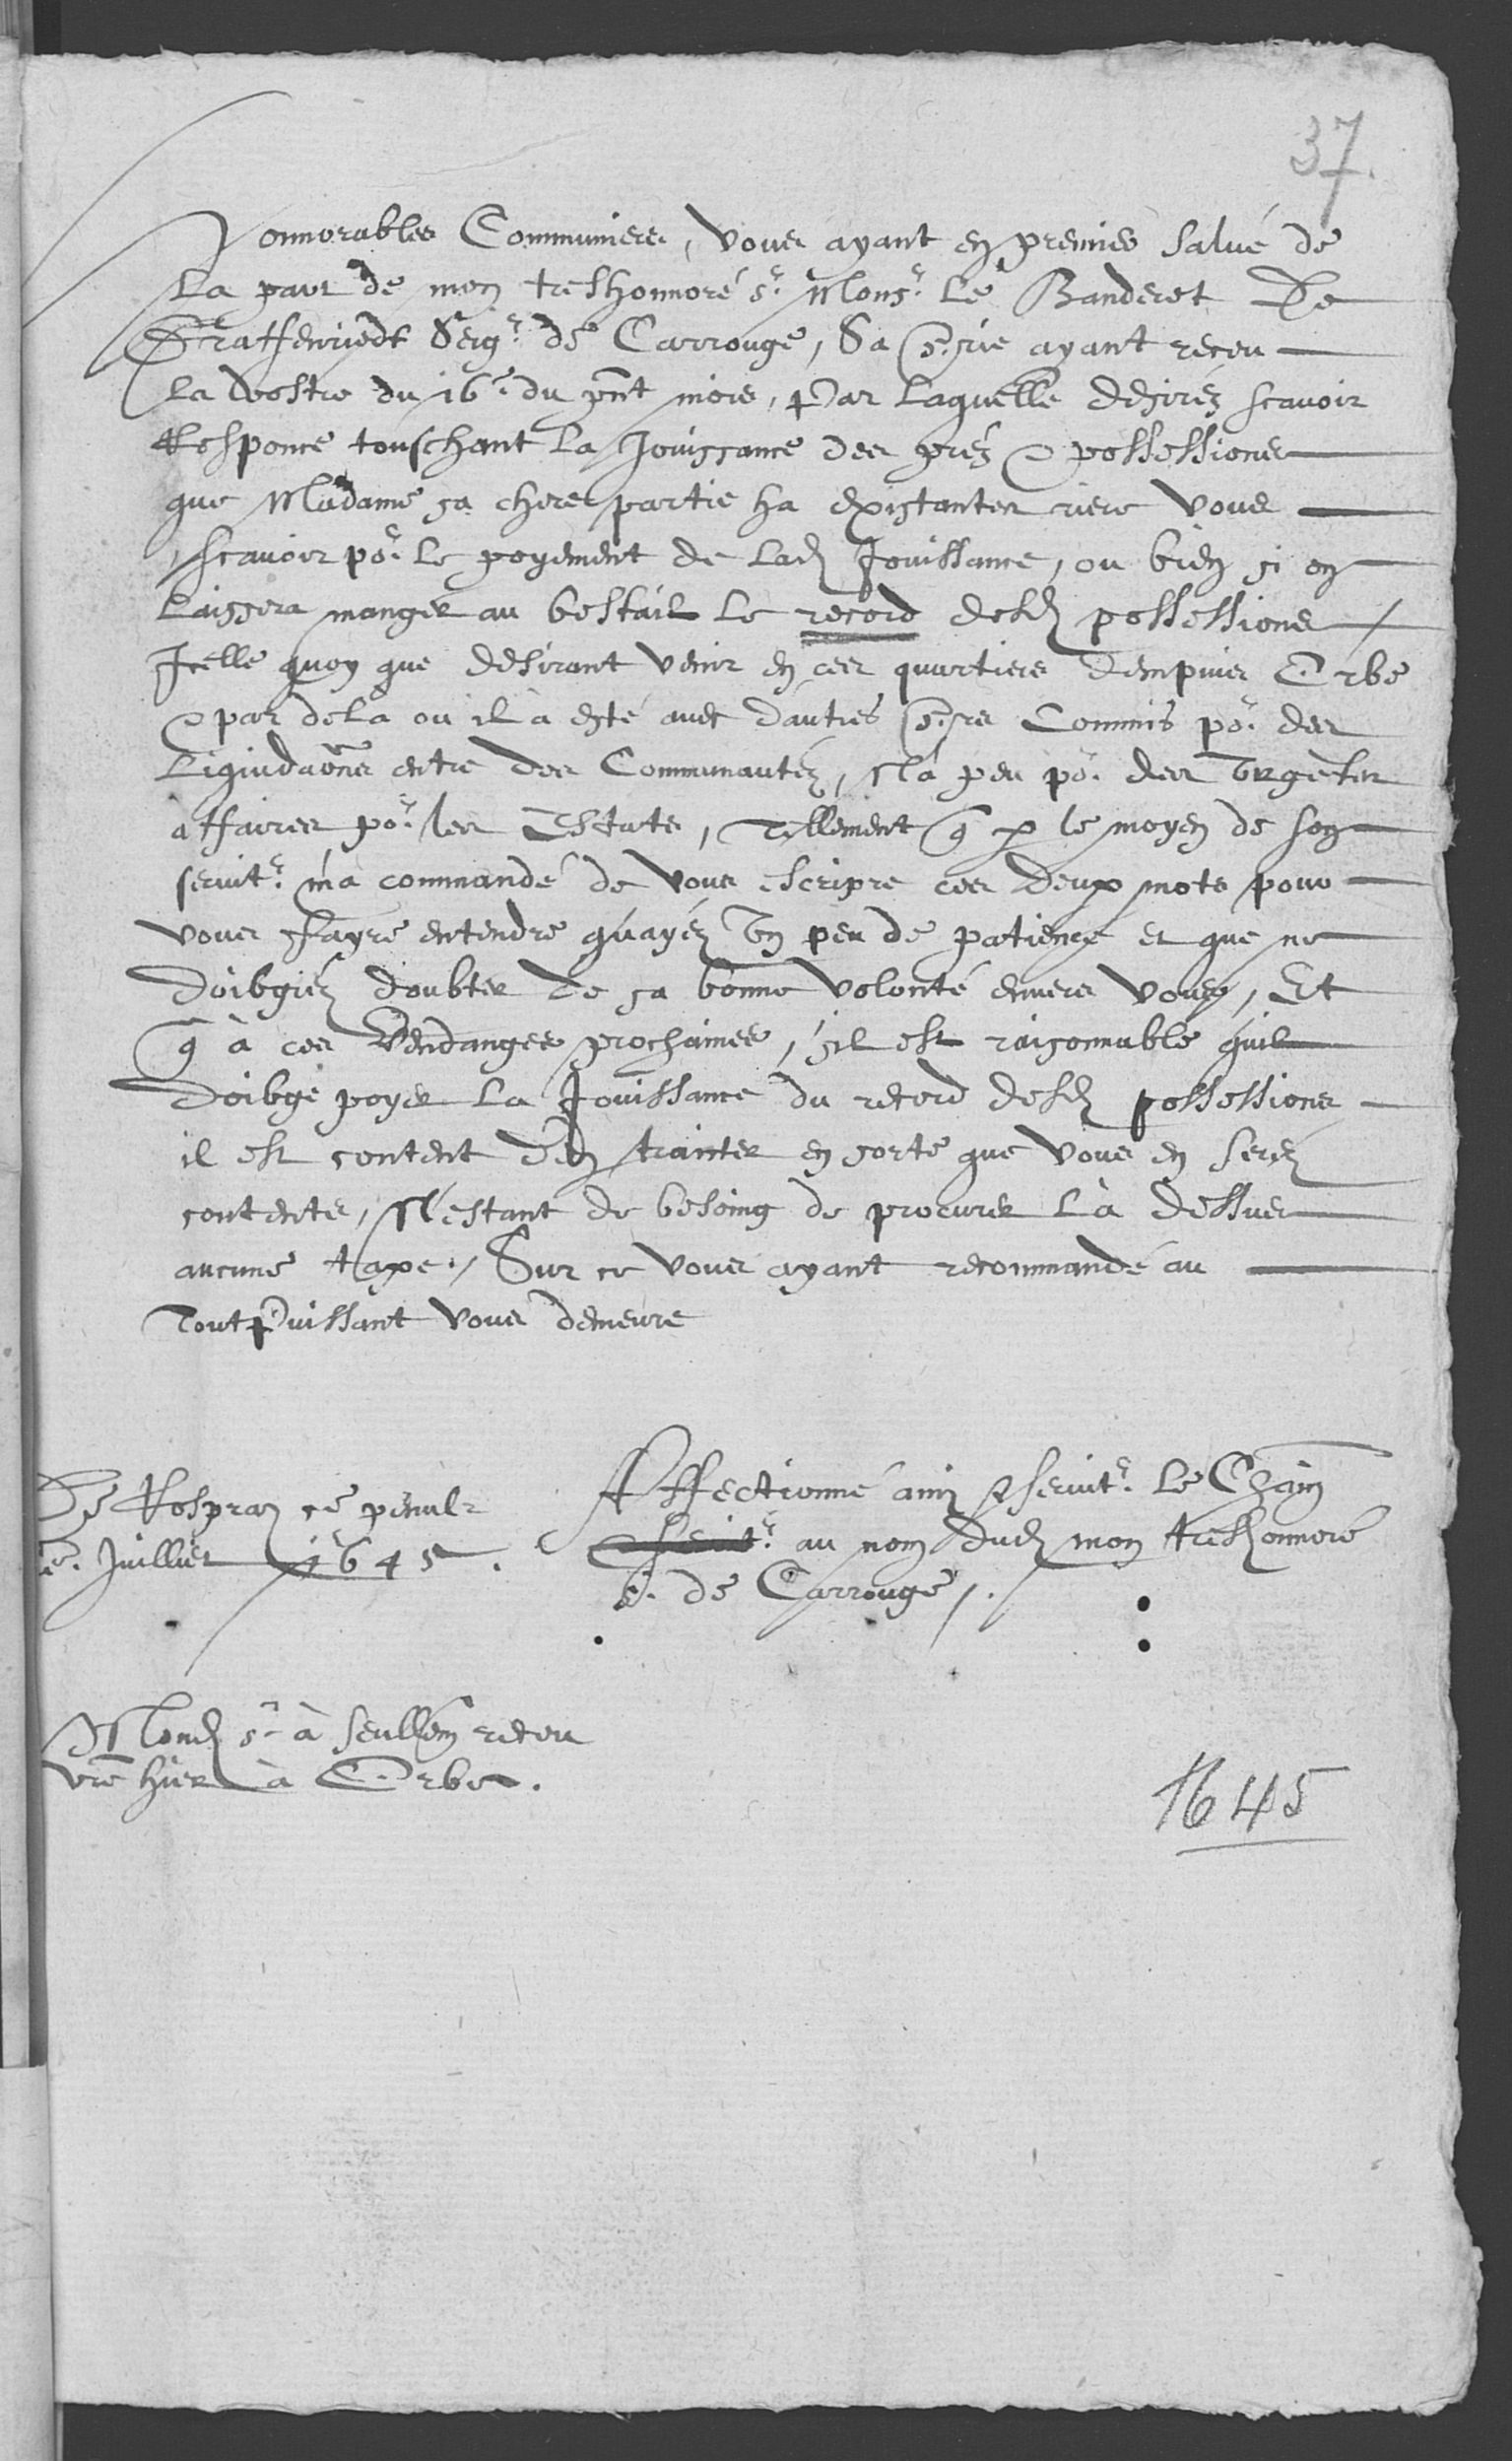 37.
Honnorables Communiers, vous ayant en premier salué de
la part de mon treshonnoré sr. Monsr. le Banderet De
Graffenriedt Seigr. de Carrouge, Sa Srie ayant receu
la vostre du 16e. du pnt mois, par laquelle desiréz scavoir
Responce touschant la Jouissance des préz & possessions
que Madame sa chere partie ha existantes riere vous
scavoir por. le poyement de lad. Jouissance, ou bien si on
laissera manger au bestail le record desd. possessions /
Icelle quoy que desirant venir en ces quartiers dempuis Orbe
& par dela ou il à esté avec dautres Srs Commis por. des
liquidaõns entre des Communautéz, n'a peu por. des Urgentes
affaires por. les Estats, Tellement q̃ p le moyen de son
servitr. m'a commandé de vous escripre ces deux mots pour
vous ffayre entendre qu'ayéz Un peu de patience et que ne
doibgiéz doubter de sa bonne volonté envers vous, Et
q̃ à ces Vendanges prochaines, s'il est raisonnable quil
doibge poyer la Jouissance du record desd. possessions
il est content d'en traitter en sorte que vous en seréz
contents, N'estant de besoing de procurer là dessus
aucune taxe./ Sur ce vous ayant recommandé au
Tout Puissant vous demeure
De Rospraz ce penul-
e. Juillet 1645.
Affectionné amy & servitr. le Chain
servitr. au nom dud. mon treshonnoré
sr. de Carrouge /.
Mond. sr. à seullem receu
vre hier à Orbe.
1645